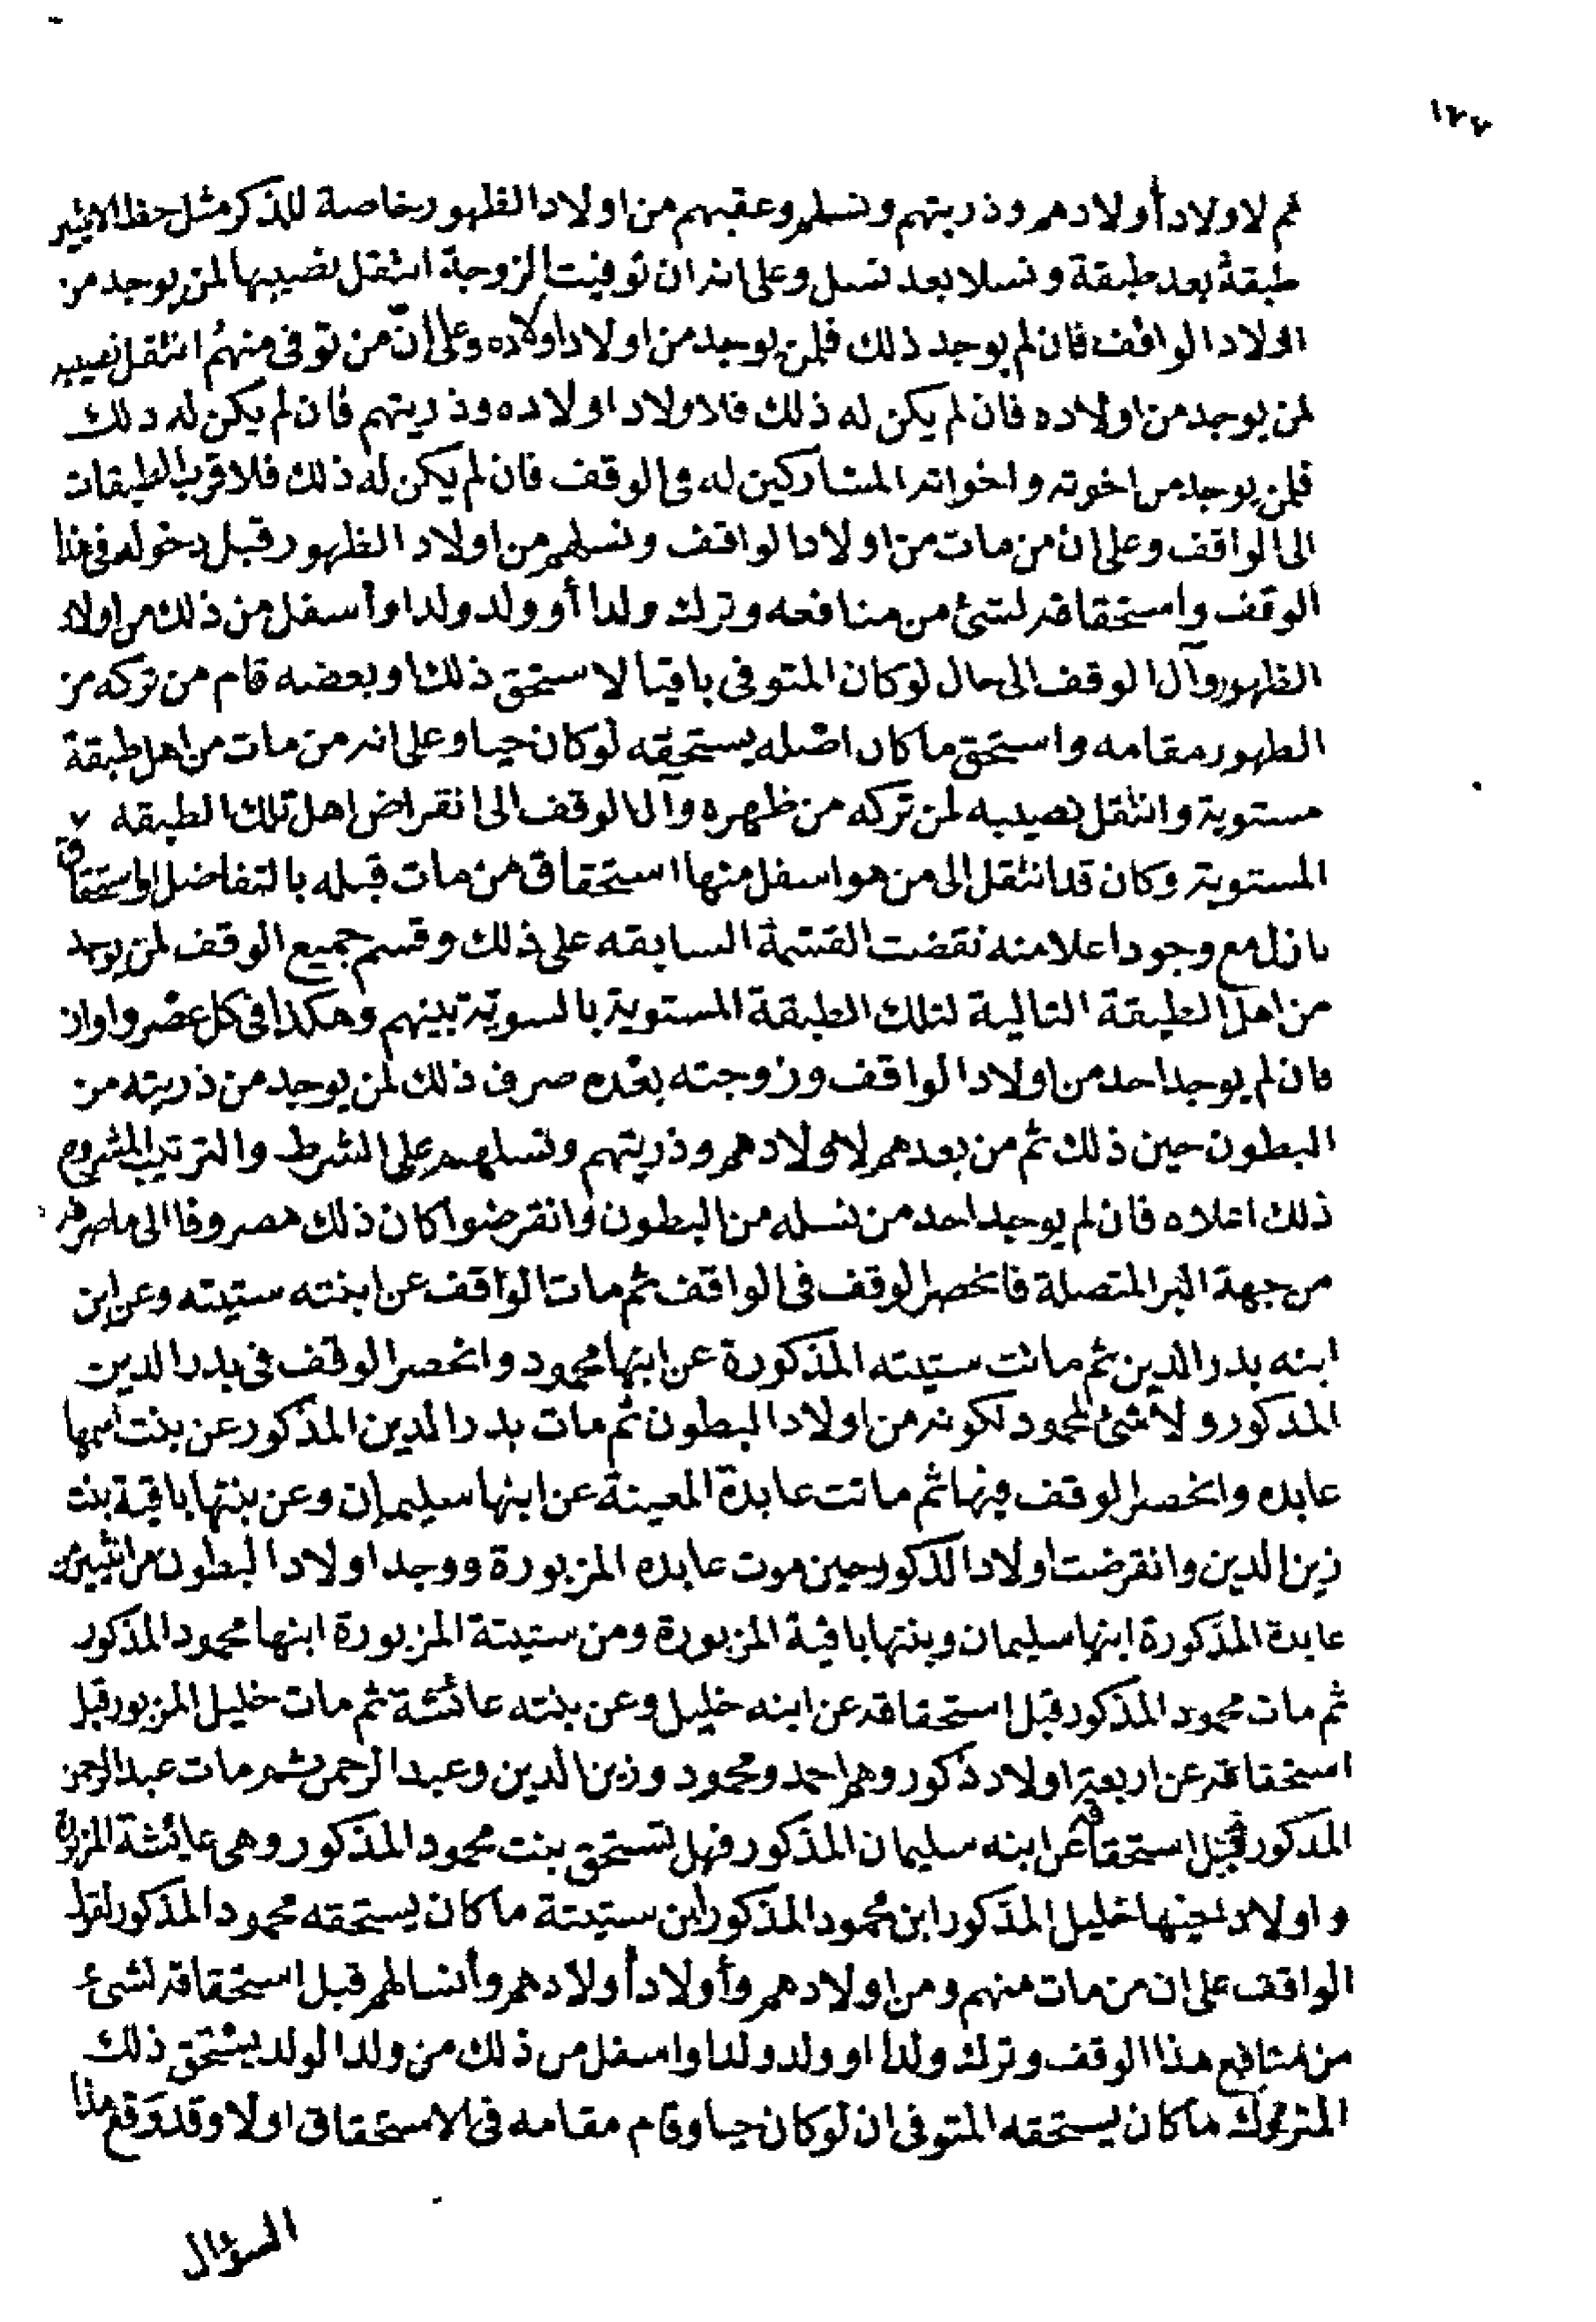 ١٢٧
ثم لاولاد أولادهم وذريتهم ونسلهم وعقبهم من اولاد الظهور خاصة للذكر مثل حظ الانثيين
طبقة بعد طبقة ونسلا بعد نسل وعلى انه ان توفيت الزوجة انتقل نصيبها لمن يوجد من
اولاد الواقف فان لم يوجد ذلك فلمن يوجد من اولاد اولاده وعلى انّ من توفى منهم انتقل نصيبه
لمن يوجد من اولاده فان لم يكن له ذلك فلاولاد اولاده وذريتهم فان لم يكن له ذلك
فلمن يوجد من اخوته واخواته المشاركين له فى الوقف فان لم يكن له ذلك فلاقرب الطبقات
الى الواقف وعلى ان من مات من اولاد الواقف ونسلهم من اولاد الظهور قبل دخوله فى هذا
الوقف واستحقاقه لشئ من منافعه وترك ولدا أو ولد ولد او أسفل من ذلك من اولاد
الظهور وآل الوقف الى حال لو كان المتوفى باقيا لاستحق ذلك او بعضه قام من تركه من
الظهور مقامه واستحق ما كان اصله يستحقه لو كان حيا وعلى انه من مات من اهل طبقة
مستوية وانتقل نصيبه لمن تركه من ظهره وآل الوقف الى انقراض اهل تلك الطبقه
المستوية وكان قد انتقل الى من هو اسفل منها استحقاق من مات قبله بالتفاضل او استحقاق
نازل مع وجود اعلا منه نقضت القسمة السابقه على ذلك وقسم جميع الوقف لمن يوجد
من اهل الطبقة التالية لتلك الطبقة المستوية بالسويّة بينهم وهكذا فى كل عصر واوان
فان لم يوجد احد من اولاد الواقف وزوجته بعده صرف ذلك لمن يوجد من ذريته من
البطون حين ذلك ثم من بعدهم لاولادهم وذريتهم ونسلهم على الشرط والترتيب المشروح
ذلك اعلاه فان لم يوجد احد من نسله من البطون وانقرضوا كان ذلك مصروفا الى مصرفه
من جهة البر المتصلة فانحصر الوقف فى الواقف ثم مات الواقف عن ابنته ستيته وعن ابن
ابنه بدر الدين ثم ماتت ستيته المذكورة عن ابنها محمود وانحصر الوقف فى بدر الدين
المذكور ولا شئ لمحمود لكونه من اولاد البطون ثم مات بدر الدين المذكور عن بنت اسمها
عابده وانحصر الوقف فيها ثم ماتت عابدة المعينة عن ابنها سليمان وعن بنتها باقية بنت
زين الدين وانقرضت اولاد الذكور حين موت عابده المزبورة ووجد اولاد البطون من انثيين من
عابدة المذكورة ابنها سليمان وبنتها باقية المزبورة ومن ستيتة المزبورة ابنها محمود المذكور
ثم مات محمود المذكور قبل استحقاقه عن ابنه خليل وعن بنته عائشة ثم مات خليل المزبور قبل
استحقاقه عن اربعة اولاد ذكور وهم احمد ومحمود وزين الدين وعبد الرحمن ثم مات عبد الرحمن
المذكور قبل استحقاقه عن ابنه سليمان المذكور فهل تستحق بنت محمود المذكور وهى عائشة المزبورة
واولاد اخيها خليل المذكور ابن محمود المذكور ابن ستيتة ما كان يستحقه محمود المذكور لقول
الواقف على ان من مات منهم ومن اولادهم وأولاد أولادهم وأنسالهم قبل استحقاقه لشئ
من منافع هذا الوقف وترك ولدا او ولد ولد او اسفل من ذلك من ولد الولد يستحق ذلك
المتروك ما كان يستحقه المتوفى ان لو كان حيا وقام مقامه فى الاستحقاق اولا وقد وقع هذا
السؤال